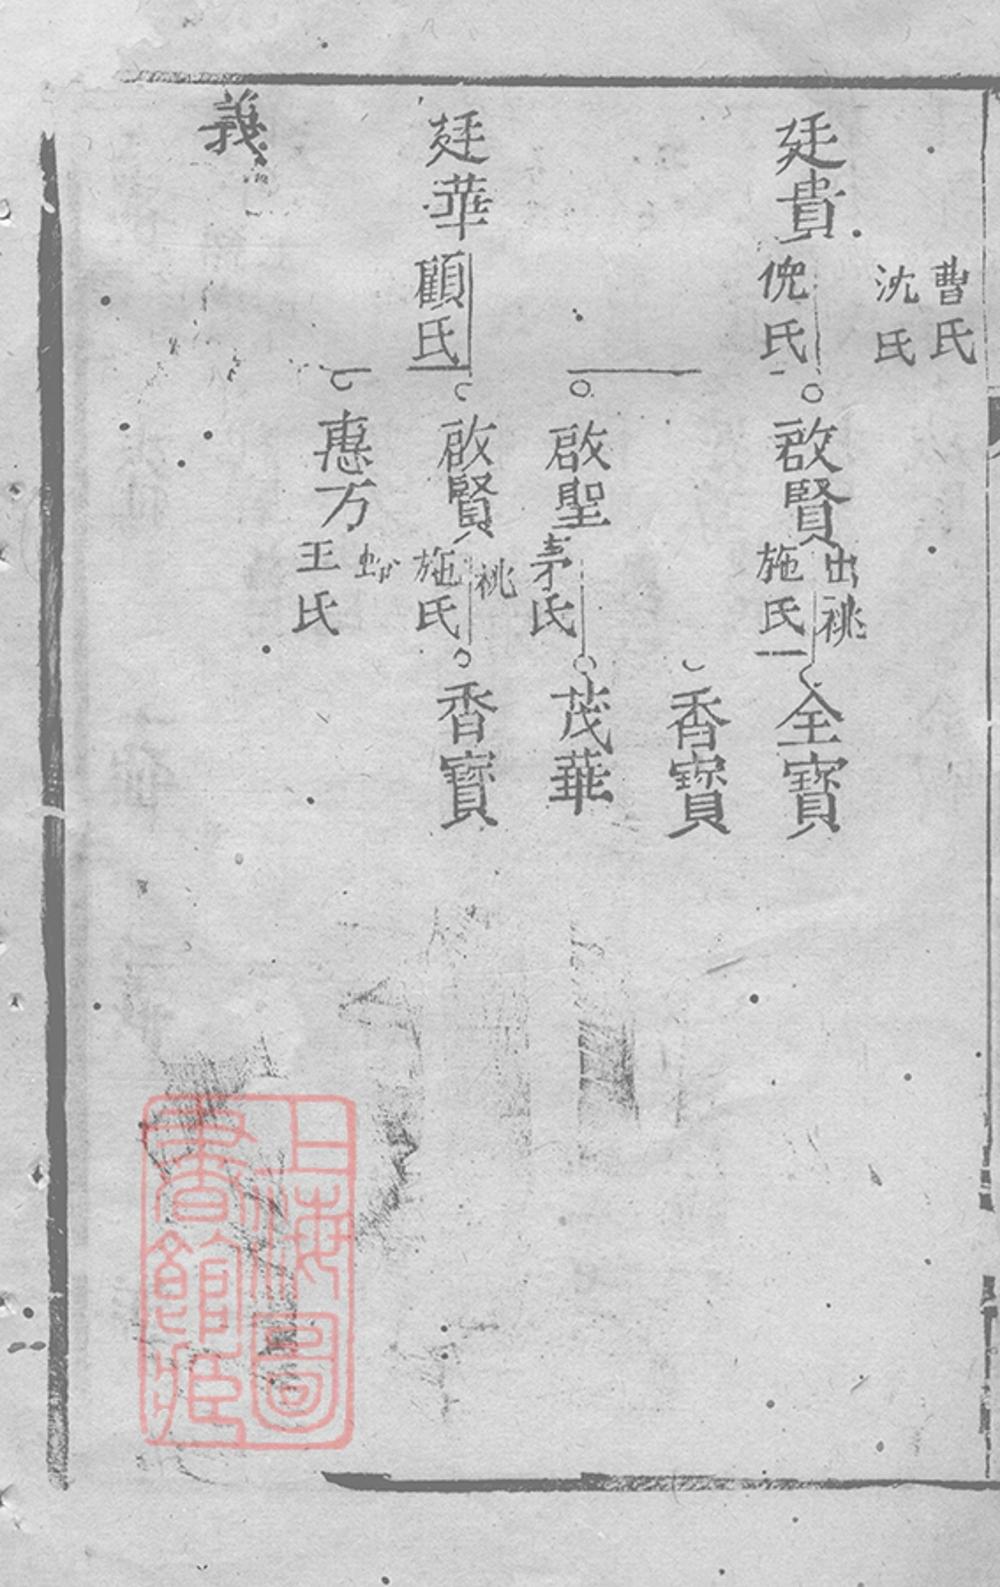 曹氏
沈氏
廷貴
倪氏
啟賢
出祧
施氏
全寶
香寶
啟聖
茅氏
茂華
廷華
顧氏
啟賢
祧
施氏
香寶
惠万
王氏
義
上海圖
書館藏